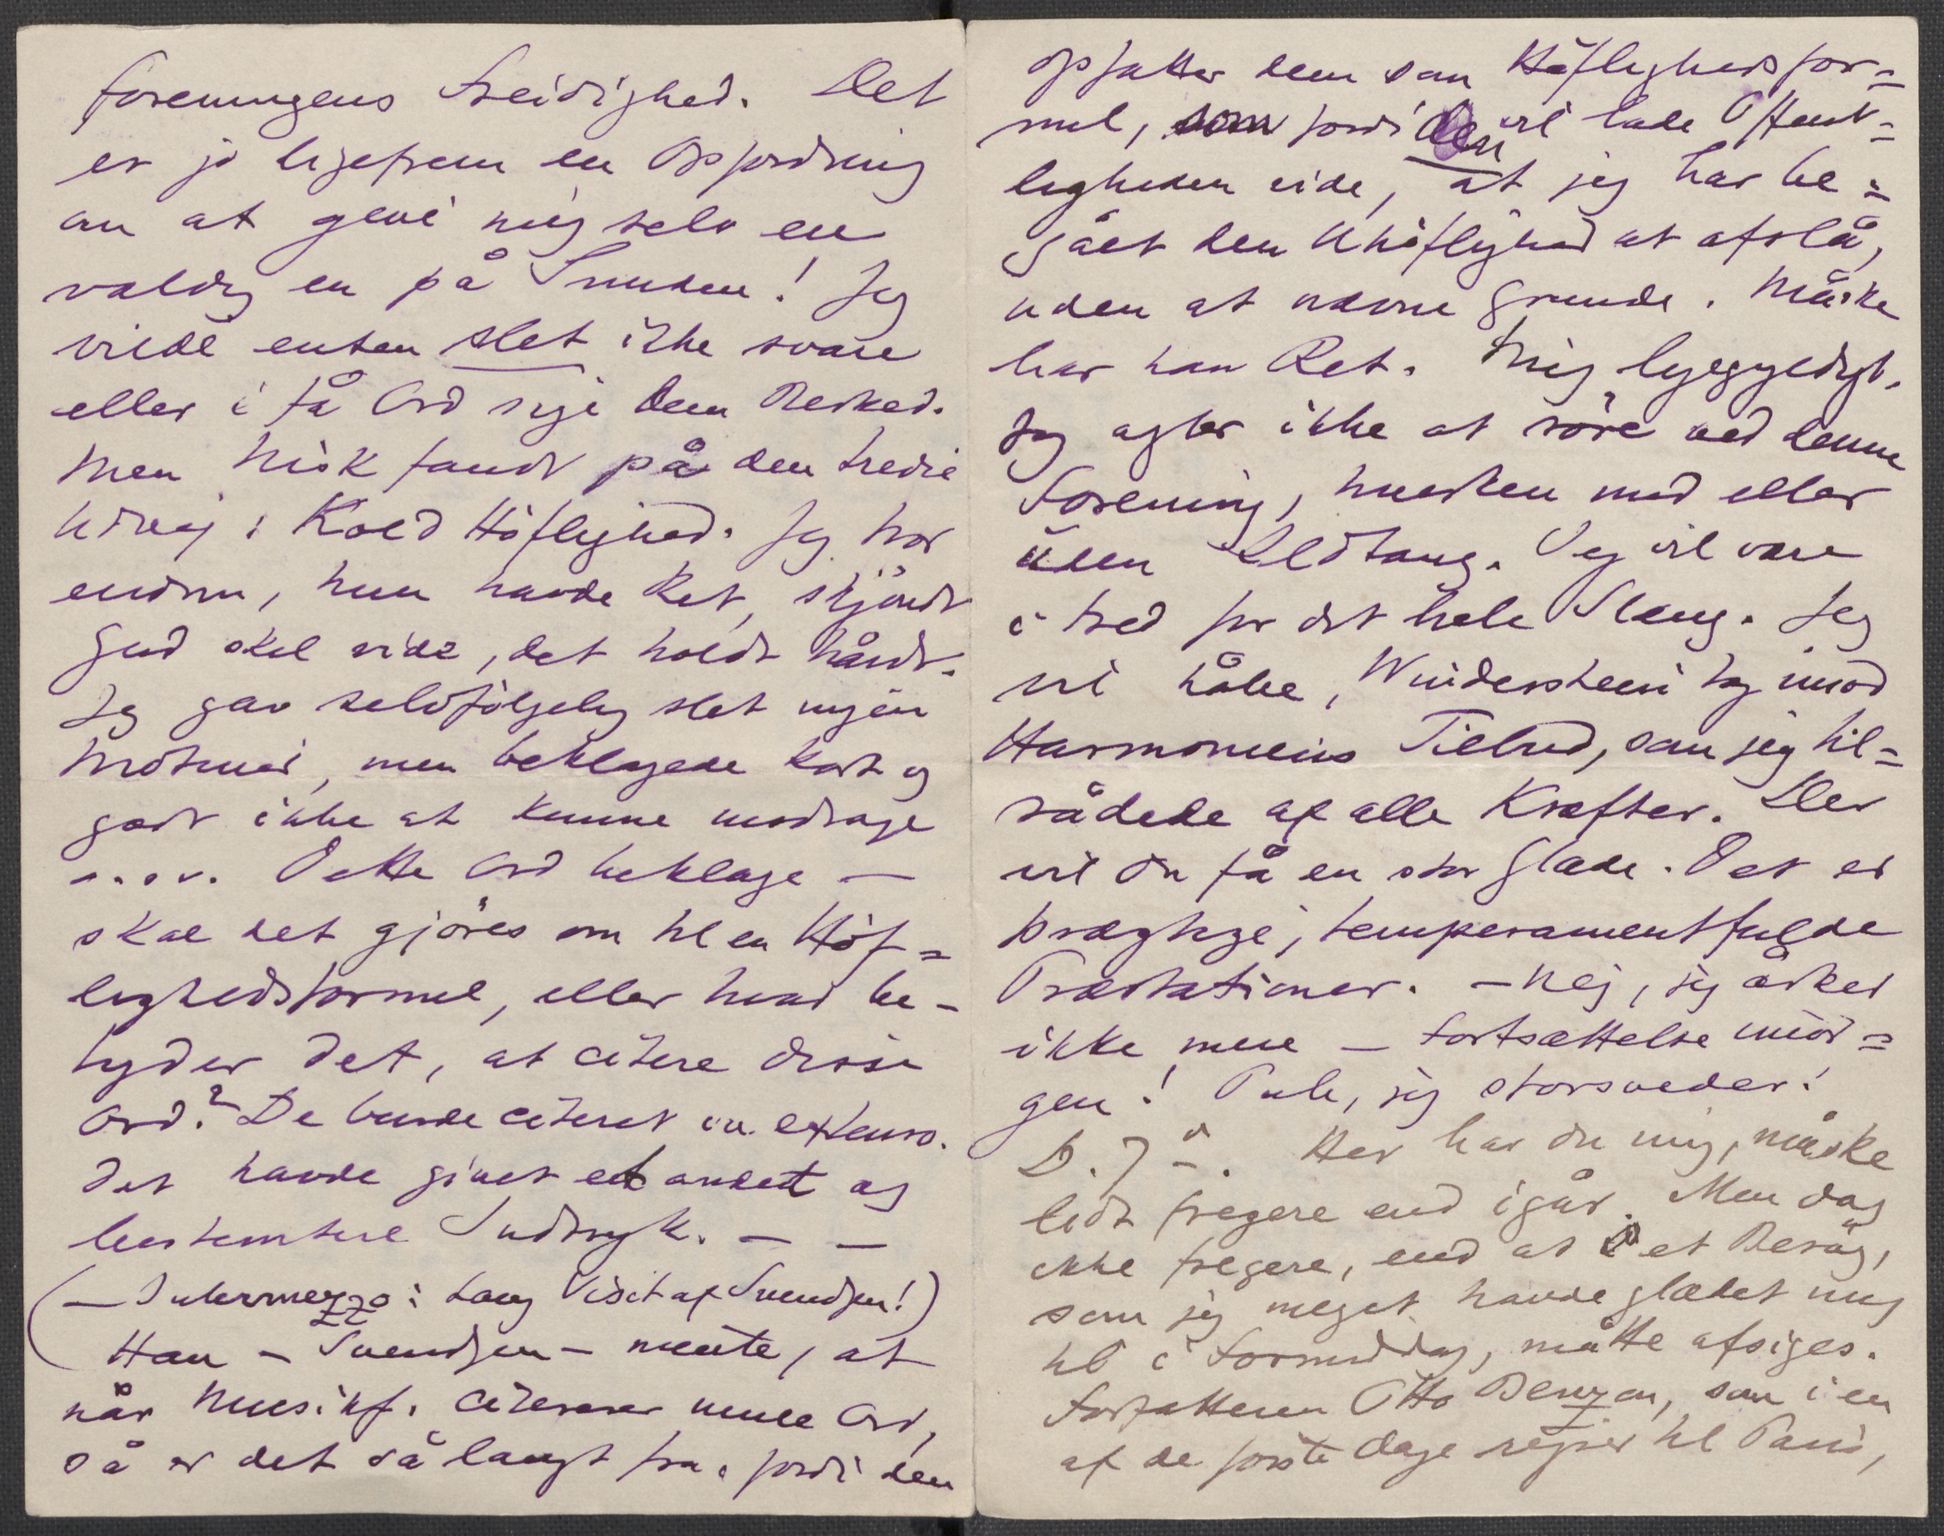 foreningens Freidighed. Det
er jo ligefrem en Opfordring
om at give mig selv en
vældig en på Snuden! Jeg
vilde enten slet ikke svare
eller i få Ord sige dem Besked.
Men Nisk fandt på den tredie
Udvej: Kold Höflighed. Jeg tror
endnu, hun havde Ret, skjöndt
Gud skal vide, det holdt hårdt.
Jeg gav selvfölgelig slet ingen
Motiver, men beklagede kort og
godt ikke at kunne modtage
o.s.v. Dette Ord beklage —
skal det gjöres om til en Höf=
lighedsformel, eller hvad be-
tyder det, at citere disse
Ord? De burde citeret in extenso.
Det havde givet et andet og
bestemtere Indtryk. — —
(— Intermezzo: Lang Visit af Svendsen!)
Han – Svendsen – mente, at
når Musikf. citerer mine Ord,
så er det så langt fra, fordi den
opfatter dem som Höflighedsfor=
mel, som fordi den vil lade Offent=
ligheden vide, at jeg har be=
gået den Uhöflighed at afslå,
uden at nævne Grunde. Måske
har han Ret. Mig ligegyldigt.
Jeg agter ikke at röre ved denne
Forening, hverken med eller
uden Ildtang. Jeg vil være
i Fred for det hele Slæng. Jeg
vil håbe, Winderstein tog imod
Harmoniens Tilbud, som jeg til=
rådede af alle Kræfter. Der
vil du få en stor Glæde. Det er
prægtige, temperamentfulde
Præstationer. – Nej, jeg orker
ikke mere – Fortsættelse imor=
gen! Puh, jeg storsveder!
D. 7de. Her har du mig, måske
lidt fregere end igår. Men dog
ikke fregere, end at et Besög,
som jeg meget havde glædet mig
til i Formiddag, måtte afsiges.
Forfatteren Otto Benzon, som i en
af de förste Dage rejser til Paris,